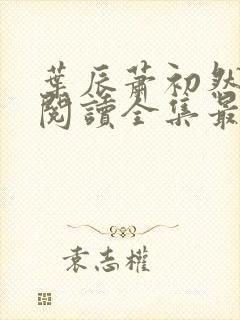 葉辰蕭初然
閱讀全集最
袁志權